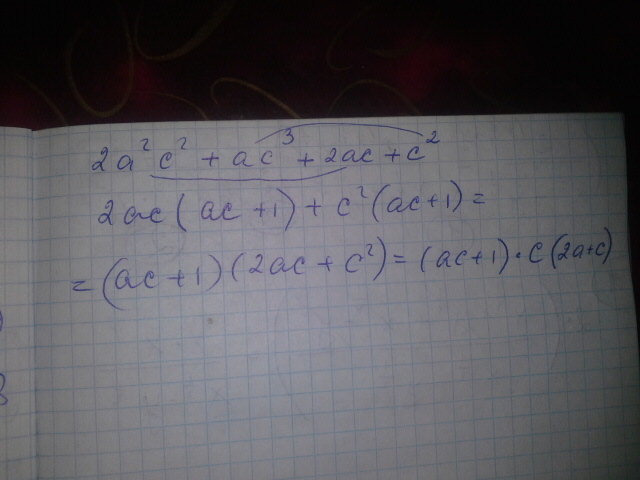 2a²c² + ac³ + 2ac + c²
2ac(ac+1) + c²(ac+1) =
= (ac+1)(2ac+c²) = (ac+1)·c(2a+c)